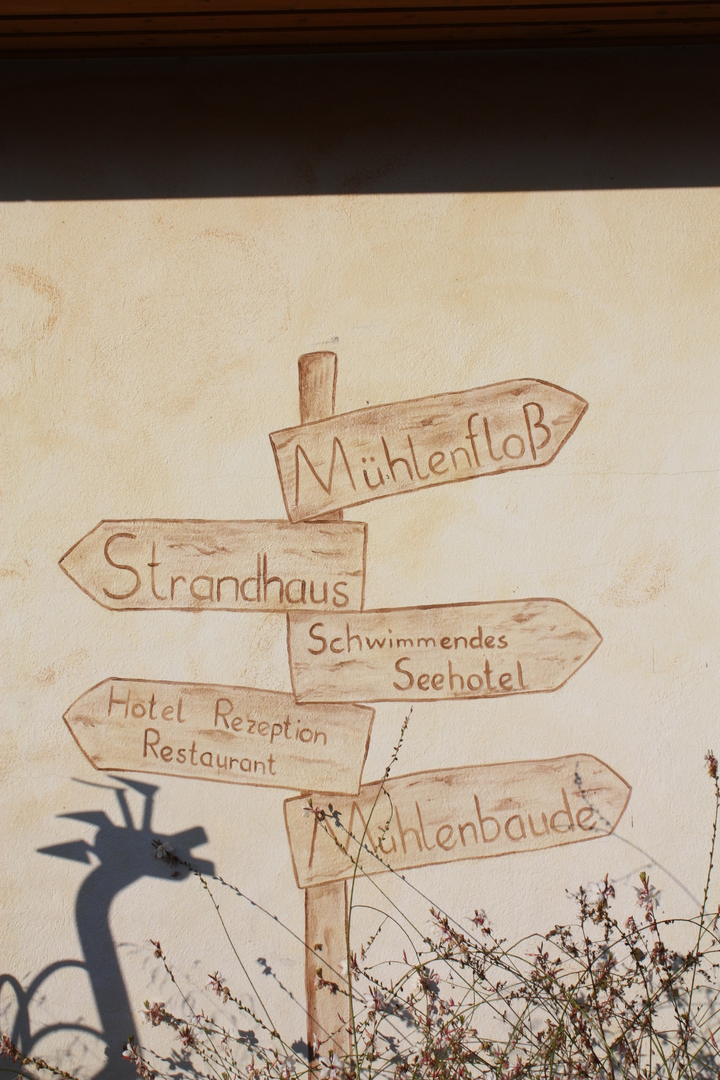 Mühlenfloß
Strandhaus
Schwimmendes
Seehotel
Hotel Rezeption
Restaurant
Mühlenbaude